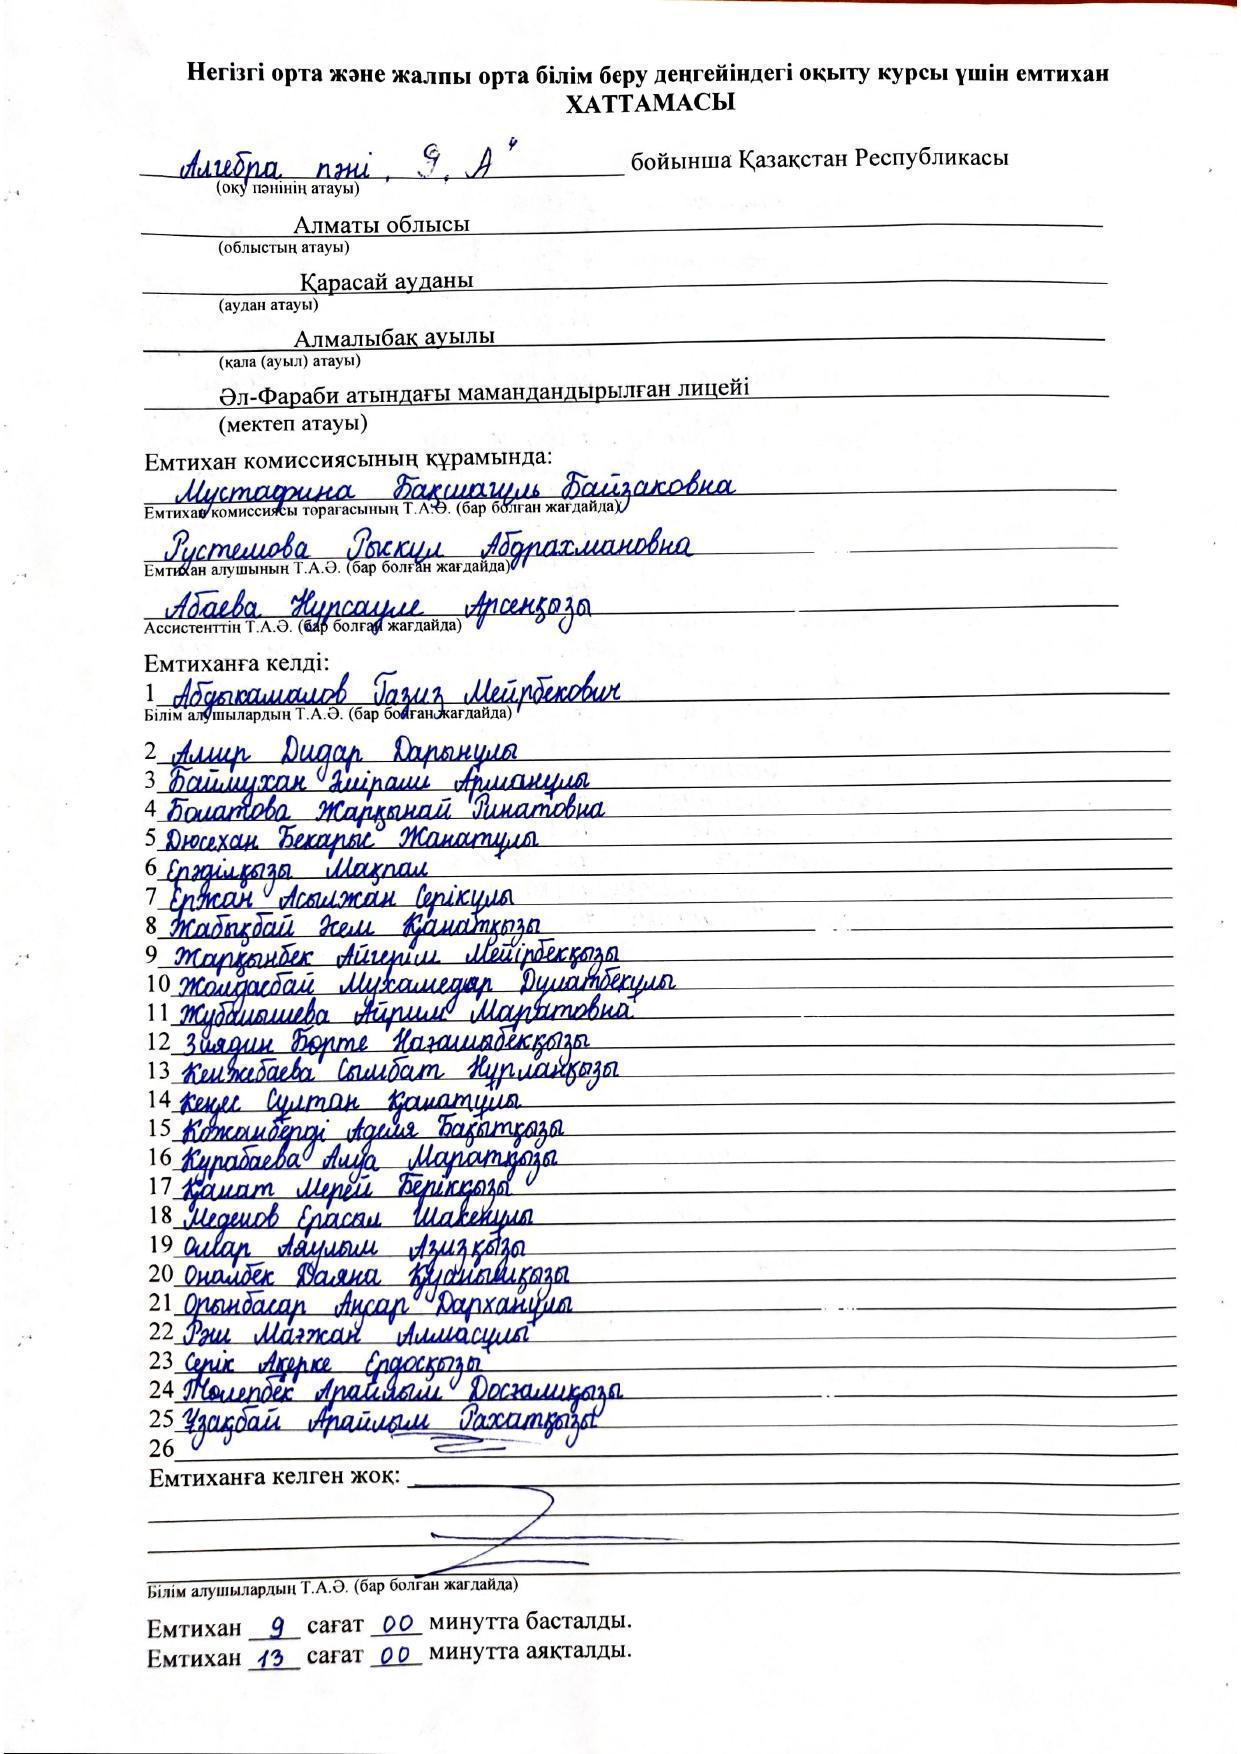 Негізгі орта және жалпы орта білім беру деңгейіндегі оқыту курсы үшін емтихан
ХАТТАМАСЫ
Алгебра пәні, 9 „А" бойынша Қазақстан Республикасы
(оқу пәнінің атауы)
Алматы облысы
(облыстың атауы)
Қарасай ауданы
(аудан атауы)
Алмалыбақ ауылы
(қала (ауыл) атауы)
Әл-Фараби атындағы мамандандырылған лицейі
(мектеп атауы)
Емтихан комиссиясының құрамында:
Мустафина Бақшагуль Байзаковна
Емтихан комиссиясы төрағасының Т.А.Ә. (бар болған жағдайда)
Рустемова Рыскул Абдрахмановна
Емтихан алушының Т.А.Ә. (бар болған жағдайда)
Абаева Нұрсауле Арсенқызы
Ассистенттің Т.А.Ә. (бар болған жағдайда)
Емтиханға келді:
1 Абдыкамалов Ғазиз Мейрбекович
Білім алушылардың Т.А.Ә. (бар болған жағдайда)
2 Әмір Дидар Дарынұлы
3 Баймұхан Әмірәлі Арманұлы
4 Болатова Жарқынай Ринатовна
5 Дюсехан Бекарыс Жанатұлы
6 Ерәділқызы Мақпал
7 Ержан Асылжан Серікұлы
8 Жабықбай Қанатқызы
9 Жарқынбек Айгерім Мейірбекқызы
10 Жолдасбай Мухамедяр Дулатбекұлы
11 Жубанышева Айрим Маратовна
12 Зиядин Бөрте Нағашыбекқызы
13 Кенжебаева Сымбат Нұрланқызы
14 Кеңес Сұлтан Қанатұлы
15 Кожанберді Аделя Бақытқызы
16 Курабаева Алуа Маратқызы
17 Қанат Мерей Берікқызы
18 Меденов Ерасыл Шакенұлы
19 Омар Аяулым Азизқызы
20 Оналбек Даяна Қуанышқызы
21 Орынбасар Аңсар Дарханұлы
22 Рәш Мағжан Алмасұлы
23 Серік Ақерке Ердосқызы
24 Төлепбек Арайлым Досғалиқызы
25 Ұзақбай Арайлым Рахатқызы
26
Емтиханға келген жоқ:
Білім алушылардың Т.А.Ә. (бар болған жағдайда)
Емтихан 9 сағат 00 минутта басталды.
Емтихан 13 сағат 00 минутта аяқталды.